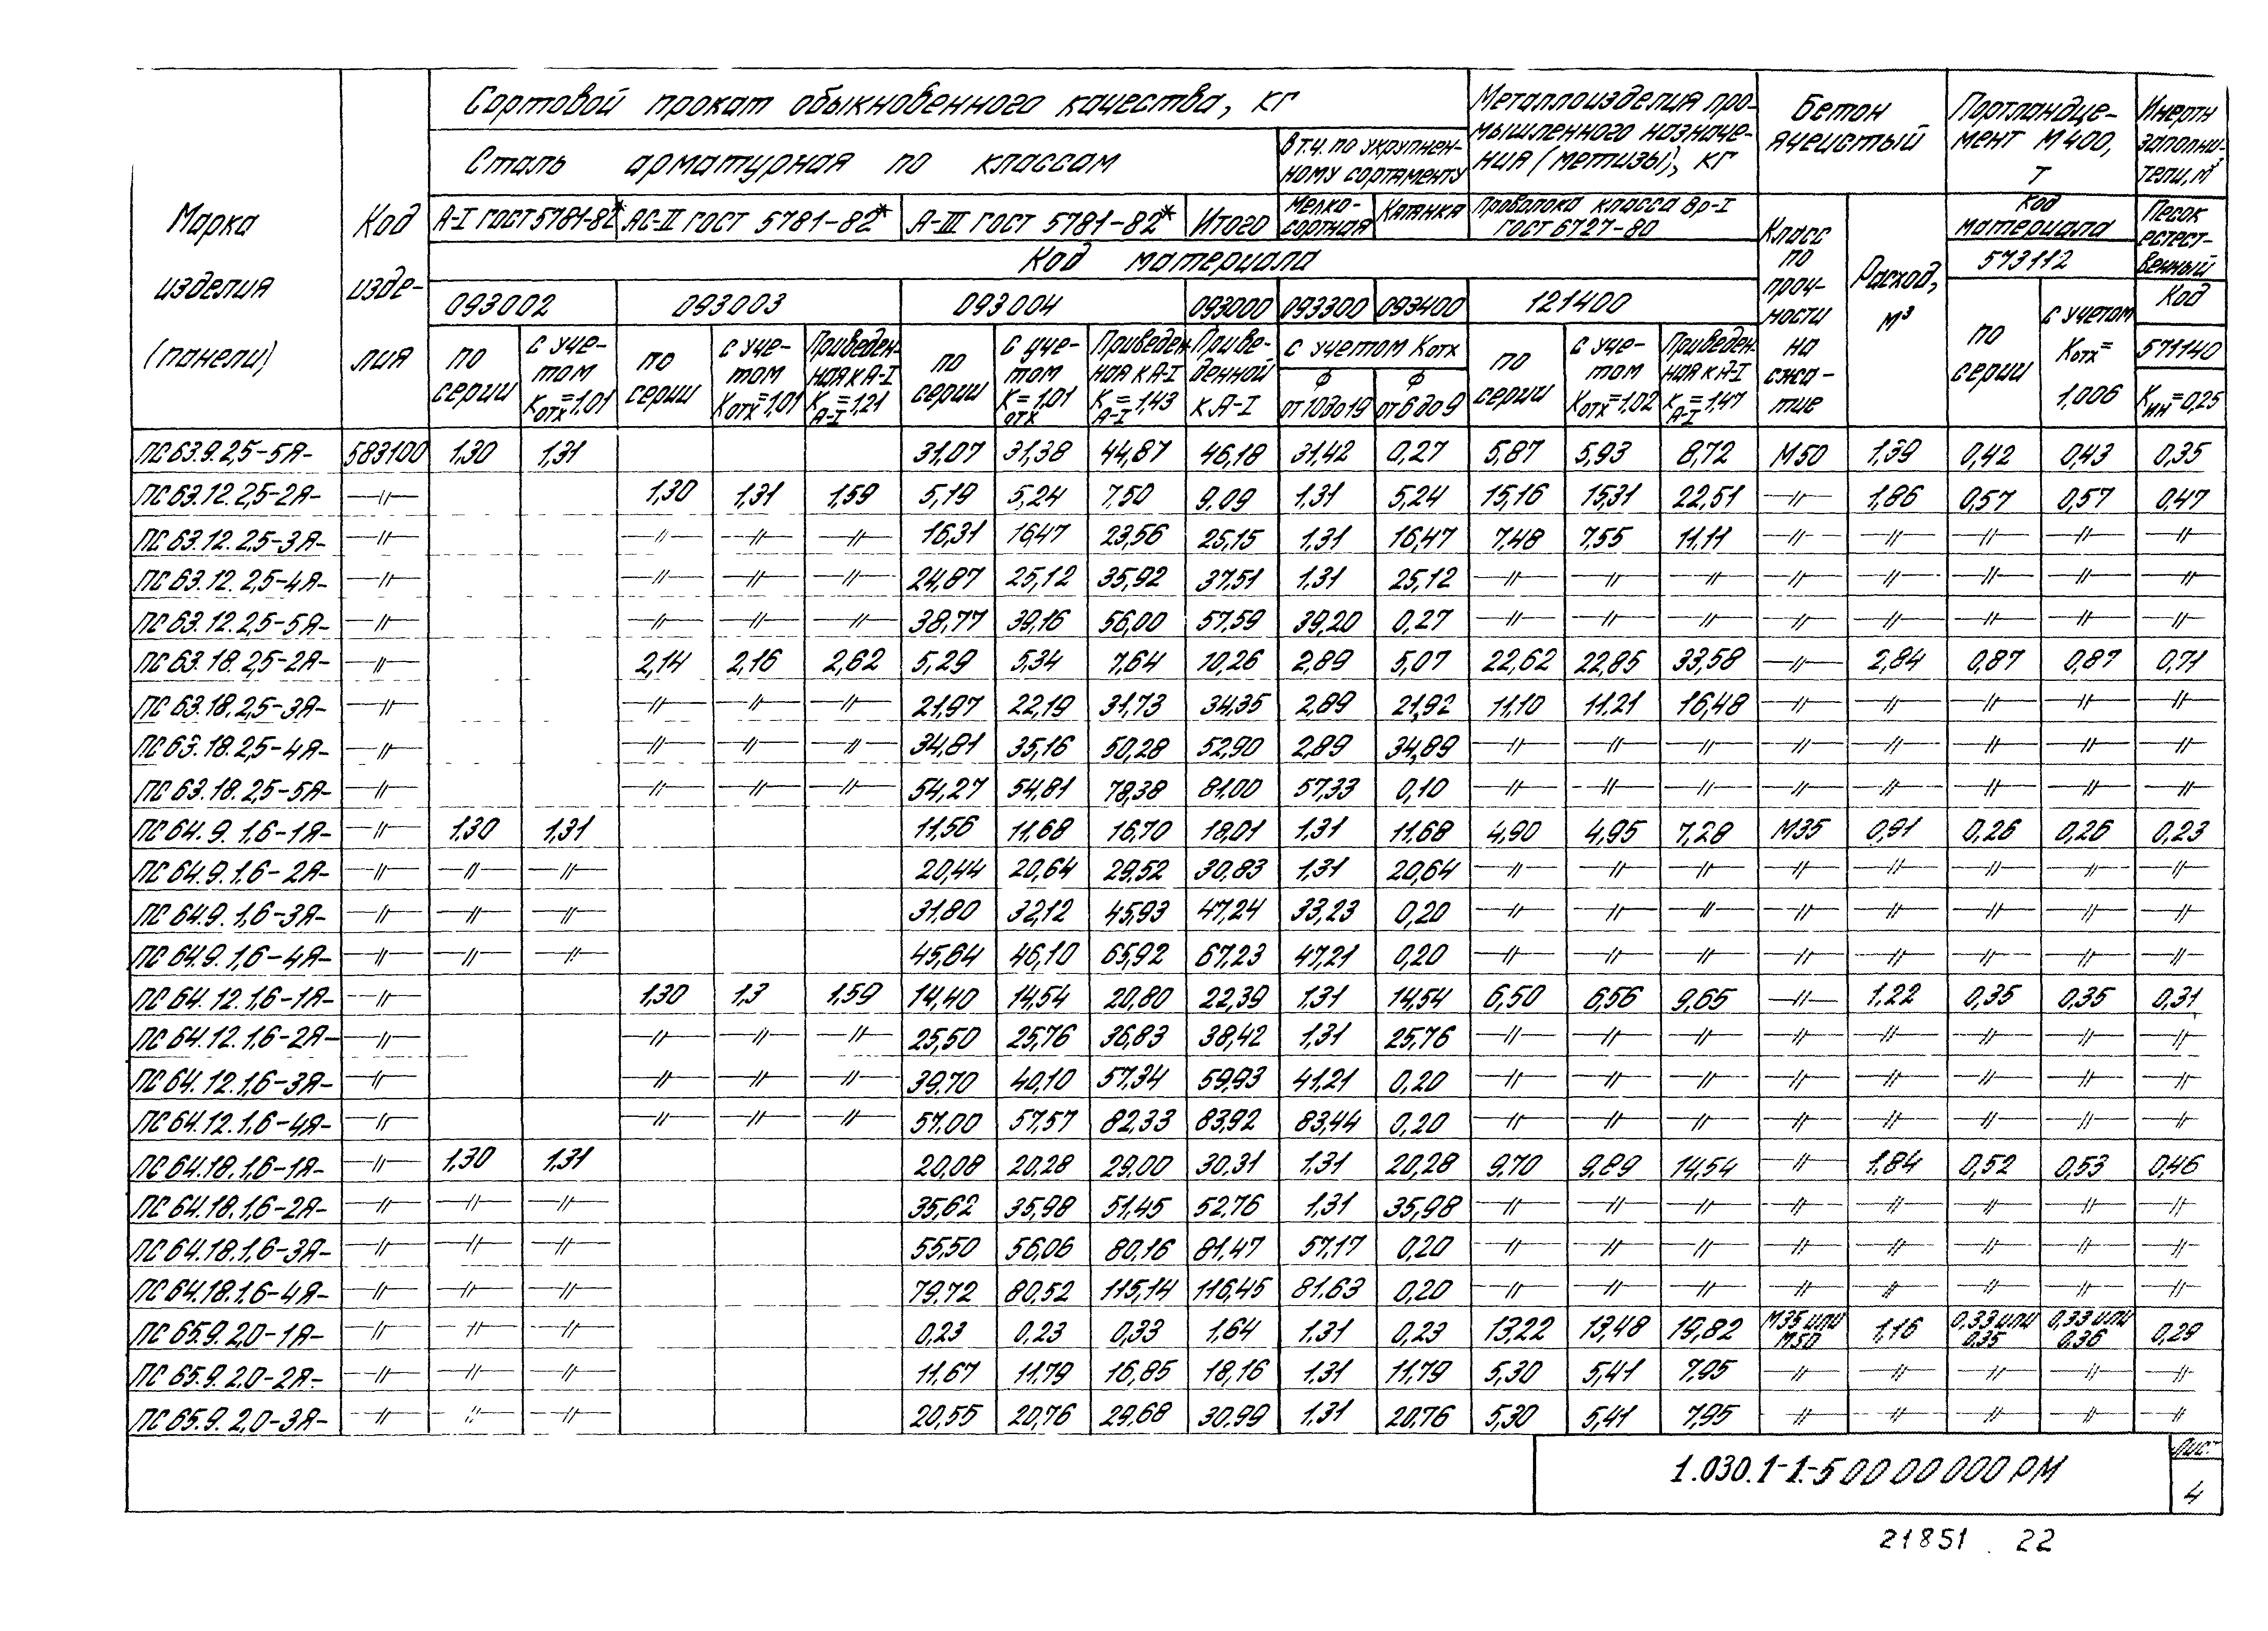 Сортовой прокат обыкновенного качества, кг
Металлоизделия про-
мышленного назначе-
ния (метизы), кг
Бетон
ячеистый
Портландце-
мент М400,
т
Инертн
заполни-
тели, м³
Сталь арматурная по классам
в т.ч. по укрупнен-
ному сортаменту
Марка
изделия
(панели)
Код
изде-
лия
А-I ГОСТ 5781-82* Ас-II ГОСТ 5781-82* А-III ГОСТ 5781-82* Итого
Мелко-
сортная
Катанка
Проволока класса Вр-I
ГОСТ 6727-80
Класс
по
проч-
ности
на
сжа-
тие
Расход,
м³
Код
материала
573112
Песок
естест-
венный
Код
571140
Кин=0,25
Код материала
093002 093003 093004 093000 093300 093400 121400
по
серии
с уче-
том
Котх=1,01
по
серии
с уче-
том
Котх=1,01
Приведен-
ная к А-I
К А-I=1,21
по
серии
с уче-
том
К отх=1,01
Приведен
ная к А-I
К А-I=1,43
Приве-
денной
к А-I
с учетом Котх
Ф
от 10 до 19
Ф
от 6 до 9
по
серии
с уче-
том
Котх=1,02
Приведен-
ная к А-I
К А-I=1,47
по
серии
с учетом
Котх=
1,006
ПС 63.9.2,5-5Я- 583100 1,30 1,31 31,07 31,38 44,87 46,18 31,42 0,27 5,87 5,93 8,72 М50 1,39 0,42 0,43 0,35
ПС 63.12.2,5-2Я- -〃- 1,30 1,31 1,59 5,19 5,24 7,50 9,09 1,31 5,24 15,16 15,31 22,51 -〃- 1,86 0,57 0,57 0,47
ПС 63.12.2,5-3Я- -〃- -〃- -〃- -〃- 16,31 16,47 23,56 25,15 1,31 16,47 7,48 7,55 11,11 -〃- -〃- -〃- -〃- -〃-
ПС 63.12.2,5-4Я- -〃- -〃- -〃- -〃- 24,87 25,12 35,92 37,51 1,31 25,12 -〃- -〃- -〃- -〃- -〃- -〃- -〃- -〃-
ПС 63.12.2,5-5Я- -〃- -〃- -〃- -〃- 38,77 39,16 56,00 57,59 39,20 0,27 -〃- -〃- -〃- -〃- -〃- -〃- -〃- -〃-
ПС 63.18.2,5-2Я- -〃- 2,14 2,16 2,62 5,29 5,34 7,64 10,26 2,89 5,07 22,62 22,85 33,58 -〃- 2,84 0,87 0,87 0,71
ПС 63.18.2,5-3Я- -〃- -〃- -〃- -〃- 21,97 22,19 31,73 34,35 2,89 21,92 11,10 11,21 16,48 -〃- -〃- -〃- -〃- -〃-
ПС 63.18.2,5-4Я- -〃- -〃- -〃- -〃- 34,81 35,16 50,28 52,90 2,89 34,89 -〃- -〃- -〃- -〃- -〃- -〃- -〃- -〃-
ПС 63.18.2,5-5Я- -〃- -〃- -〃- -〃- 54,27 54,81 78,38 81,00 57,33 0,10 -〃- -〃- -〃- -〃- -〃- -〃- -〃- -〃-
ПС 64.9.1,6-1Я- -〃- 1,30 1,31 11,56 11,68 16,70 18,01 1,31 11,68 4,90 4,95 7,28 М35 0,91 0,26 0,26 0,23
ПС 64.9.1,6-2Я- -〃- -〃- -〃- 20,44 20,64 29,52 30,83 1,31 20,64 -〃- -〃- -〃- -〃- -〃- -〃- -〃- -〃-
ПС 64.9.1,6-3Я- -〃- -〃- -〃- 31,80 32,12 45,93 47,24 33,23 0,20 -〃- -〃- -〃- -〃- -〃- -〃- -〃- -〃-
ПС 64.9.1,6-4Я- -〃- -〃- -〃- 45,64 46,10 65,92 67,23 47,21 0,20 -〃- -〃- -〃- -〃- -〃- -〃- -〃- -〃-
ПС 64.12.1,6-1Я- -〃- 1,30 1,3 1,59 14,40 14,54 20,80 22,39 1,31 14,54 6,50 6,56 9,65 -〃- 1,22 0,35 0,35 0,31
ПС 64.12.1,6-2Я- -〃- -〃- -〃- -〃- 25,50 25,76 36,83 38,42 1,31 25,76 -〃- -〃- -〃- -〃- -〃- -〃- -〃- -〃-
ПС 64.12.1,6-3Я- -〃- -〃- -〃- -〃- 39,70 40,10 57,34 59,93 41,21 0,20 -〃- -〃- -〃- -〃- -〃- -〃- -〃- -〃-
ПС 64.12.1,6-4Я- -〃- -〃- -〃- -〃- 57,00 57,57 82,33 83,92 83,44 0,20 -〃- -〃- -〃- -〃- -〃- -〃- -〃- -〃-
ПС 64.18.1,6-1Я- -〃- 1,30 1,31 20,08 20,28 29,00 30,31 1,31 20,28 9,70 9,89 14,54 -〃- 1,84 0,52 0,53 0,46
ПС 64.18.1,6-2Я- -〃- -〃- -〃- 35,62 35,98 51,45 52,76 1,31 35,98 -〃- -〃- -〃- -〃- -〃- -〃- -〃- -〃-
ПС 64.18.1,6-3Я- -〃- -〃- -〃- 55,50 56,06 80,16 81,47 57,17 0,20 -〃- -〃- -〃- -〃- -〃- -〃- -〃- -〃-
ПС 64.18.1,6-4Я- -〃- -〃- -〃- 79,72 80,52 115,14 116,45 81,63 0,20 -〃- -〃- -〃- -〃- -〃- -〃- -〃- -〃-
ПС 65.9.2,0-1Я- -〃- -〃- -〃- 0,23 0,23 0,33 1,64 1,31 0,23 13,22 13,48 19,82 М35 или М50 1,16 0,33 или 0,35 0,33 или 0,36 0,29
ПС 65.9.2,0-2Я- -〃- -〃- -〃- 11,67 11,79 16,85 18,16 1,31 11,79 5,30 5,41 7,95 -〃- -〃- -〃- -〃- -〃-
ПС 65.9.2,0-3Я- -〃- -〃- -〃- 20,55 20,76 29,68 30,99 1,31 20,76 5,30 5,41 7,95 -〃- -〃- -〃- -〃- -〃-
1.030.1-1.-5 00 00 000 РМ
Лист
4
21851 22